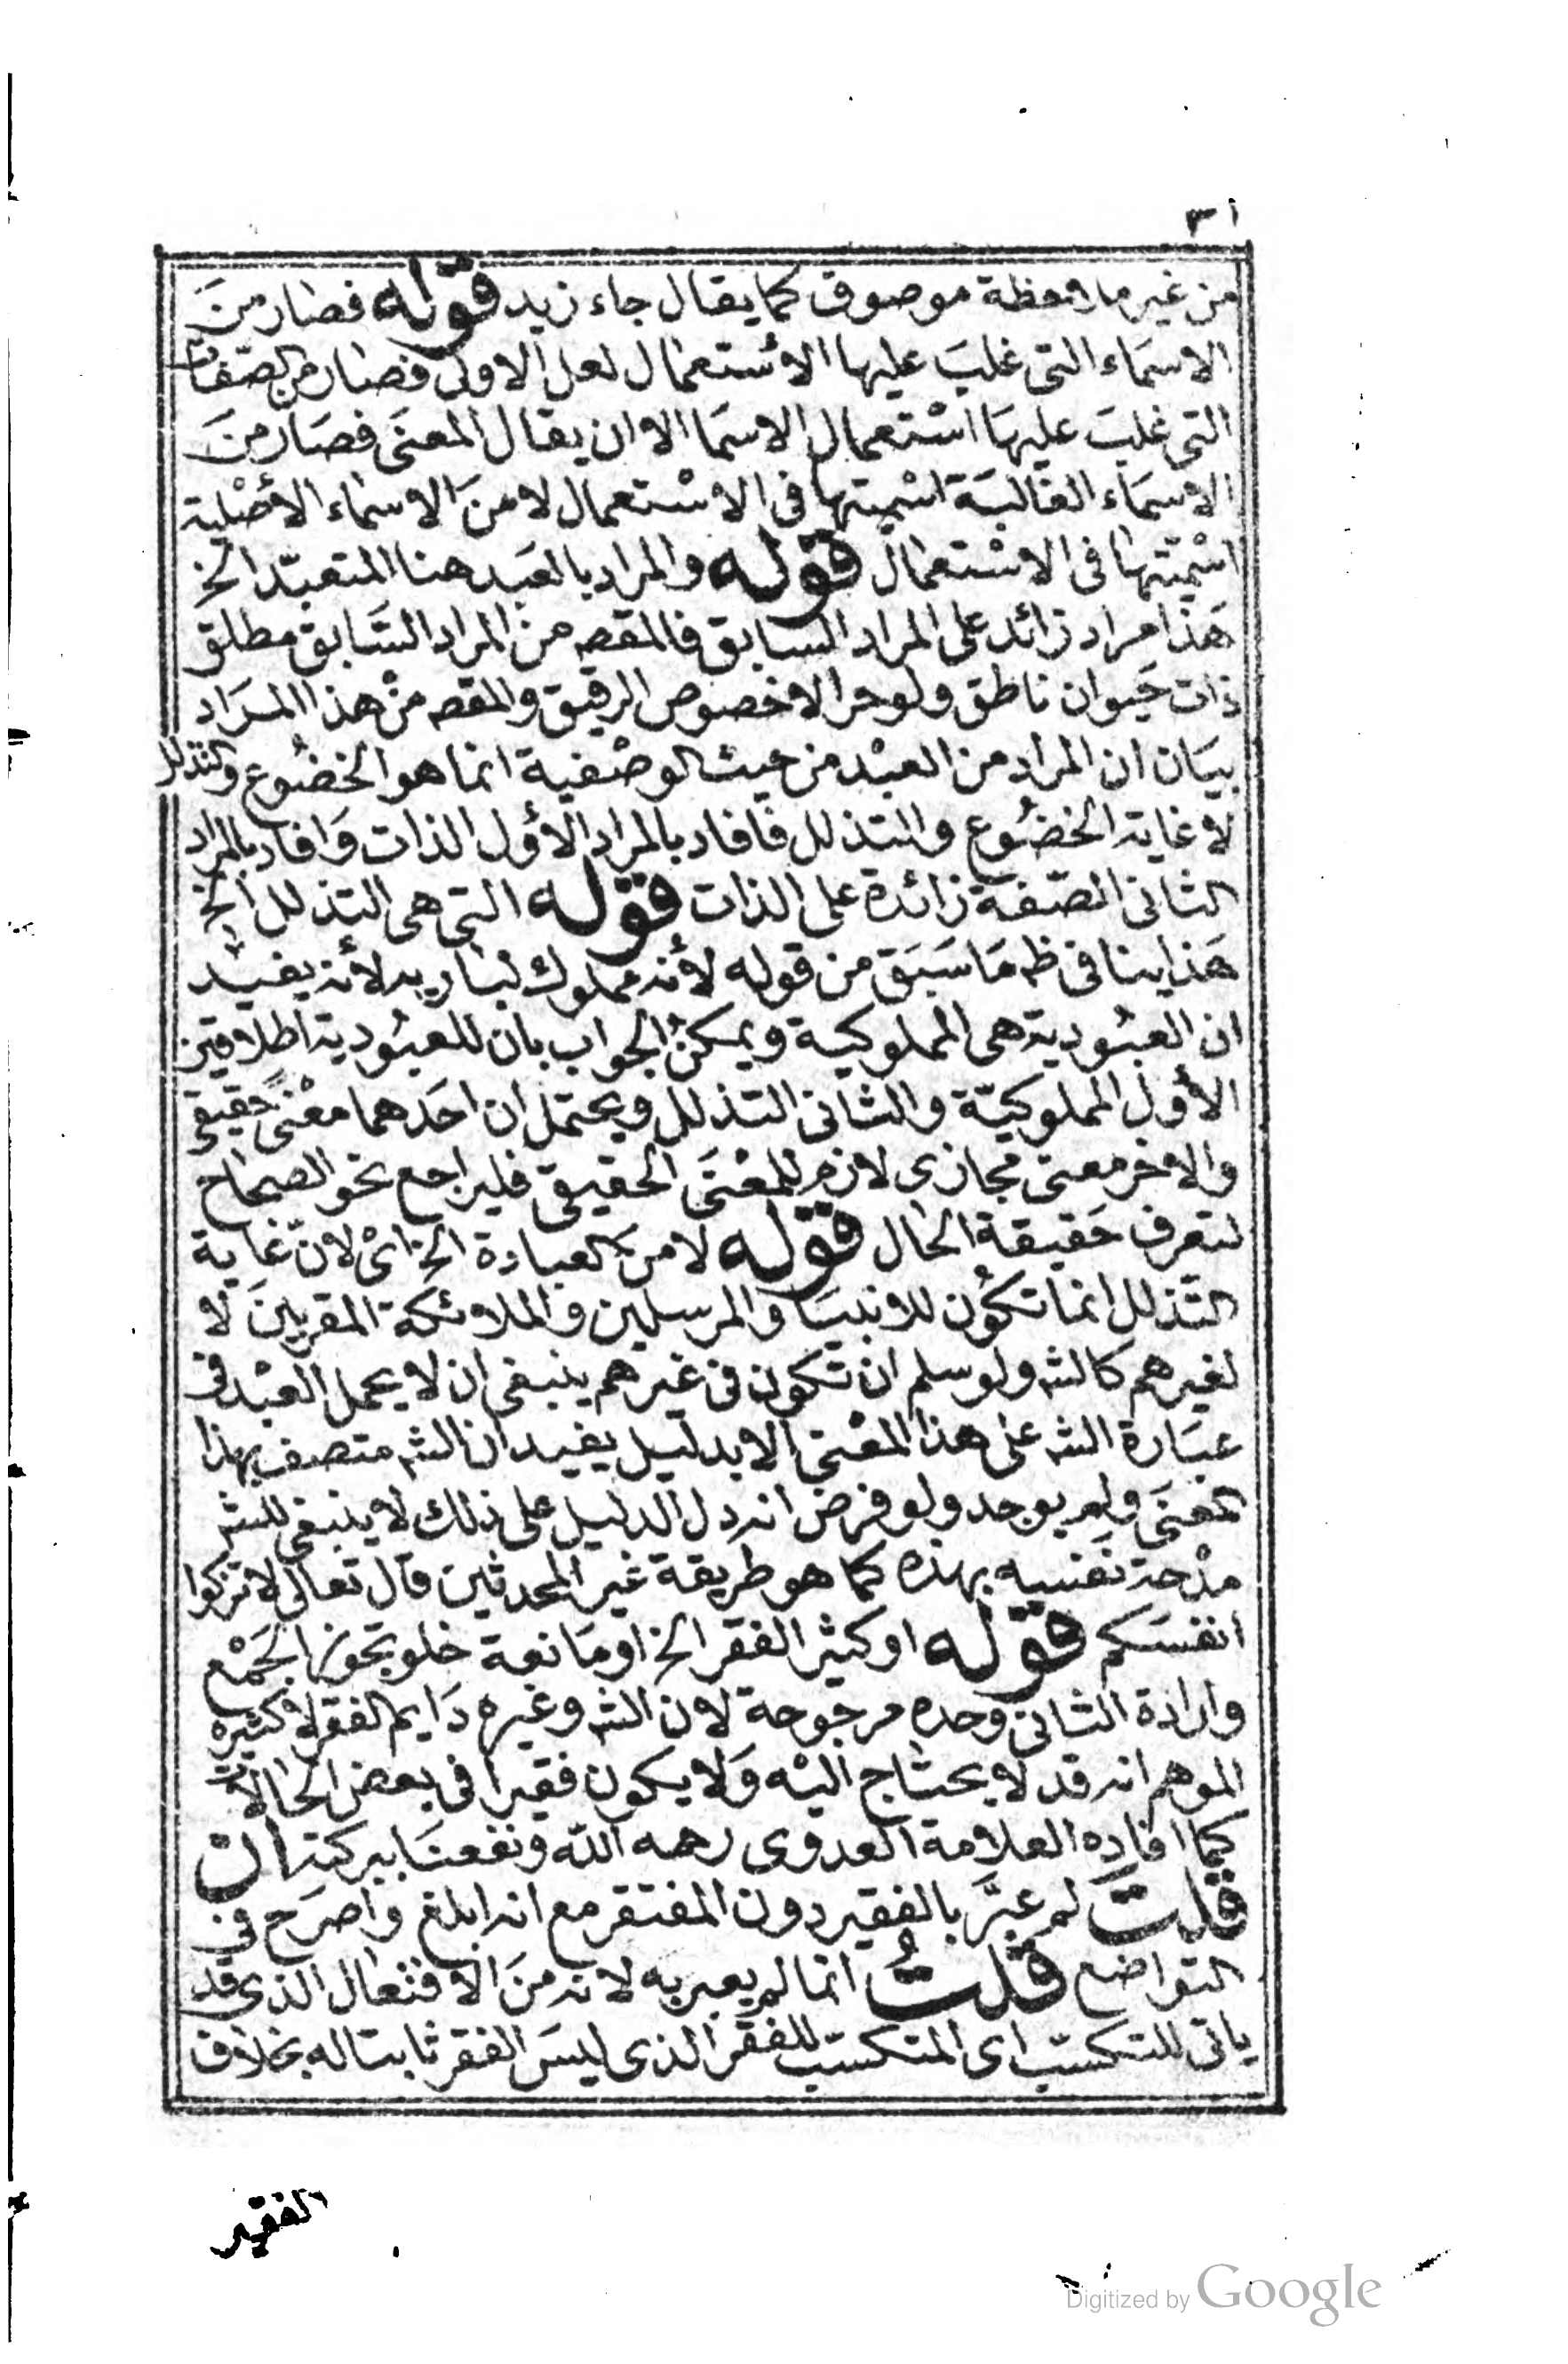 ٣١
من غير ملاحظة موصوف كما يقال جاء زيد قوله فصار منَ
الاسمَاء التى غلبَ عليها الاسْتعمال لعل الاولى فصار من الصفات
التى غلبَ عليهَا اسْتعمال الاسمَا الا ان يقال المعنَى فصَار منَ
الاسمَاء الغالبَة اسْميتها فى الاسْتعمال لا منَ الاسماء الأصْلية
اسْميّتها فى الاسْتعمال قوله والمراد بالعَبد هنا المتعبّد الخ
هَذا مراد زائد على المراد السابق فالمقصه من المراد السَّابق مطلق
ذات حَيوان ناطق ولو حرا لا خصوص الرقيق والمقصه منْ هذا المرَاد
بيَان ان المرَاد من العبْد من حيث الوصْفية انما هو الخضُوع والتذلل
لا غاية الخضُوع والتذلل فافاد بالمراد الأوّل الذات وَافاد بالمراد
الثانى الصّفة زائدة على الذات قوله التى هى التذلل الخ
هَذا ينافى ظه مَا سَبَق من قوله لأنه مملوك لباريه لأنه يفيد
ان العبُودية هى المملوكية ويمكنُ الجواب بان للعبُودية اطلاقين
الأول المملوكيّة والثانى التذلل ويحتمل ان احَدهما معْنًى حَقيقى
والاخر معنى مجازى لازم للمعْنَى الحقيقى فليراجع نحو الصحاح
لتعرف حَقيقة الحال قوله لا منَ العبادة الخ اىْ لانّ غاية
التّذلل انما تكوُن للانبيَا وَالمرسلين والملائكة المقربينَ لا
لغيرهم كالشه ولو سلم ان تكون فى غيرهم ينبغى ان لا يحمل العبْد فى
عبَارة الشه على هذا المعْنى الا بدليل يفيد ان الشه متصف بهذا
المعنَى ولم يوجد ولو فرض انه دل الدليل على ذلك لا ينبغى للشه
مدْحة نَفسه بهذه كما هو طريقة غير المحدثين قال تعالى لا تزكوا
انفسَكم قوله او كثير الفقر الخ او مَانعة خلو تجوز الجَمْع
وارادة الثانى وحده مرجوحة لان الشه وغيره دَايم الفقر لا كثيره
الموهم انه قد لا يحتاج اليْه وَلا يكون فقيرا فى بعض الحالات
كما افاده العلامة العدوى رحمه اللّه ونفعنَا ببركته ان
قلتَ لم عبّر بالفقير دون المفتقر مع انه ابلغ واصرَح فى
التواضع قلتُ انما لم يعبر به لانه منَ الافتعال الذى قد
ياتى للتكسّب اى المتكسّب للفقر الذى ليسَ الفقر ثابتا له بخلاف
الفقير
Digitized by Google